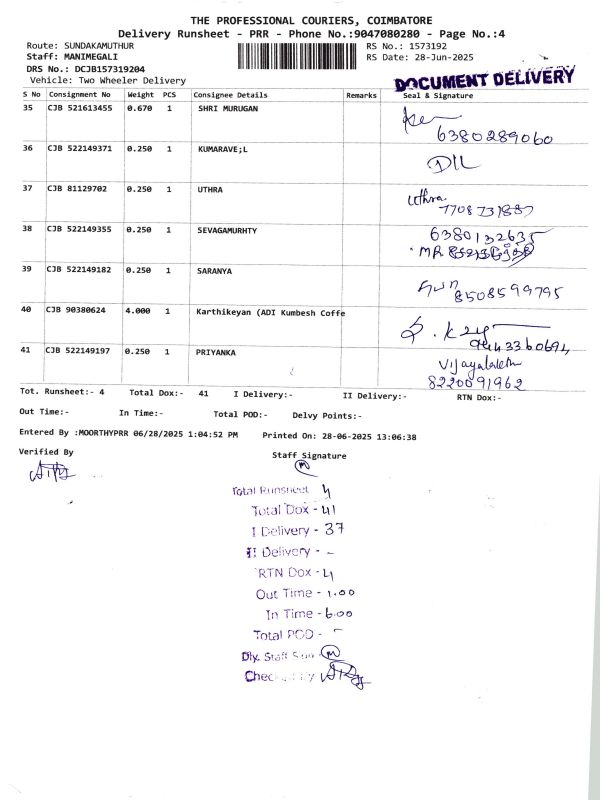 THE PROFESSIONAL COURIERS, COIMBATORE
Delivery Runsheet - PRR - Phone No.:9047080280 - Page No.:4
Route: SUNDAKAMUTHUR RS No.: 1573192
Staff: MANIMEGALI RS Date: 28-Jun-2025
DRS No.: DCJB157319204
Vehicle: Two Wheeler Delivery
DOCUMENT DELIVERY
S No Consignment No Weight PCS Consignee Details Remarks Seal & Signature
35 CJB 521613455 0.670 1 SHRI MURUGAN
6380289060
36 CJB 522149371 0.250 1 KUMARAVE;L
37 CJB 81129702 0.250 1 UTHRA Uthra
7708731887
38 CJB 522149355 0.250 1 SEVAGAMURHTY 6380132635
39 CJB 522149182 0.250 1 SARANYA
8508599795
40 CJB 90380624 4.000 1 Karthikeyan (ADI Kumbesh Coffe
9443360694
41 CJB 522149197 0.250 1 PRIYANKA
8220091962
Tot. Runsheet:- 4 Total Dox:- 41 I Delivery:- II Delivery:- RTN Dox:-
Out Time:- In Time:- Total POD:- Delvy Points:-
Entered By :MOORTHYPRR 06/28/2025 1:04:52 PM Printed On: 28-06-2025 13:06:38
Verified By Staff Signature
Total Runsheet 4
Total Dox - 41
I Delivery - 37
II Delivery - -
RTN Dox - 4
Out Time - 1.00
In Time - 6.00
Total POD - -
Dly. Staff Sign
Checked By